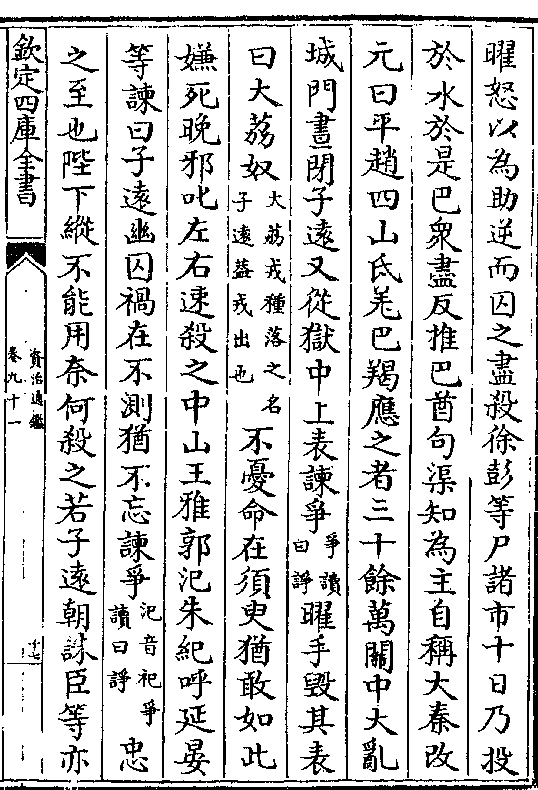 曜怒以為助逆而囚之盡殺徐彭等尸諸市十日乃投
於水於是巴衆盡反推巴酋句渠知為主自稱大秦改
元曰平趙四山氐羌巴羯應之者三十餘萬關中大亂
城門晝閉子遠又從獄中上表諫爭爭讀曰諍曜手毀其表
曰大荔奴大荔戎種落之名子遠蓋戎出也不憂命在須臾猶敢如此
嫌死晚邪叱左右速殺之中山王雅郭汜朱紀呼延晏
等諫曰子遠幽囚禍在不測猶不忘諫爭汜音祀爭讀曰諍忠
之至也陛下縱不能用奈何殺之若子遠朝誅臣等亦
欽定四庫全書
資治通鑑
卷九十一
十七